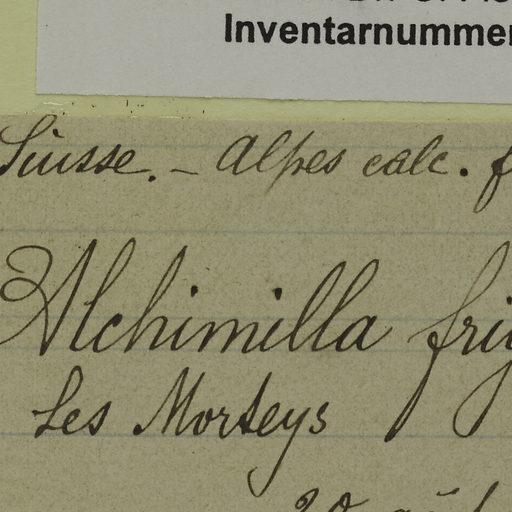 Inventarnummer
Suisse. - Alpes calc. f
Alchimilla frig
Les Morteys
20 aoû